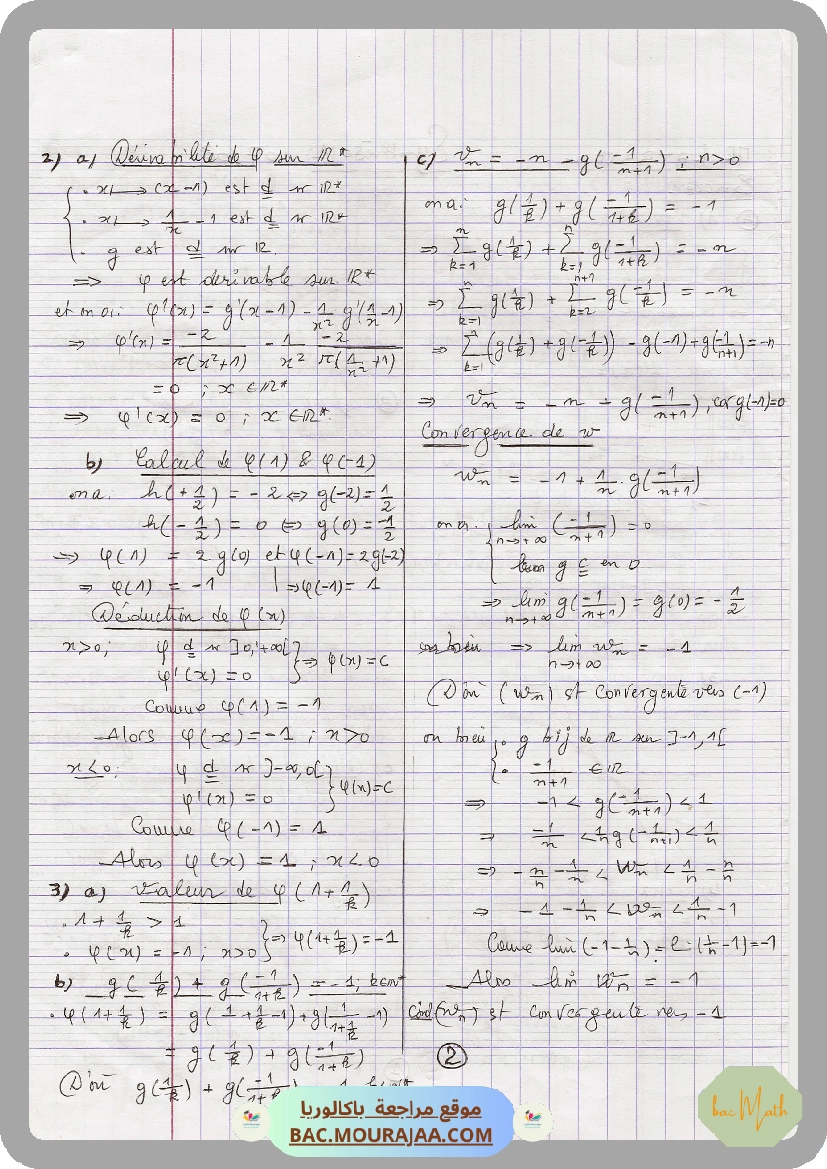 2) a) Dérivabilité de φ sur IR*
. x ⟼ (x-1) est d sr IR*
. x ⟼ 1/x - 1 est d sr IR*
. g est d sr IR.
⟹ φ est derivable sur IR*
et on a: φ'(x) = g'(x-1) - 1/x² g'(1/x - 1)
⟹ φ'(x) = -2/π(x²+1) - 1/x² -2/π(1/x²+1)
= 0 ; x ∈ IR*
⟹ φ'(x) = 0 ; x ∈ IR*
b) Calcul de φ(1) & φ(-1)
on a: h(+1/2) = -2 ⟺ g(-2) = 1/2
h(-1/2) = 0 ⟺ g(0) = -1/2
⟹ φ(1) = 2g(0) et φ(-1) = 2g(-2)
⟹ φ(1) = -1 | ⟹ φ(-1) = 1
Déduction de φ(x)
x>0; φ d sr ]0,+∞[
φ'(x) = 0 } ⟹ φ(x) = C
Comme φ(1) = -1
Alors φ(x) = -1 ; x>0
x<0: φ d sr ]-∞,0[
φ'(x) = 0 } φ(x) = C
Comme φ(-1) = 1
Alors φ(x) = 1 ; x<0
3) a) Valeur de φ(1+1/k)
. 1 + 1/k > 1
. φ(x) = -1 ; x>0 } ⟹ φ(1+1/k) = -1
b) g(1/k) + g(-1/1+k) = -1 ; k∈IN*
. φ(1+1/k) = g(1+1/k-1) + g(1/1+1/k - 1)
= g(1/k) + g(-1/1+k)
D'où g(1/k) + g(-1/1+k)
c) Vn = -n - g(-1/n+1) ; n>0
on a: g(1/k) + g(-1/1+k) = -1
⟹ Σ k=1 n g(1/k) + Σ k=1 n g(-1/1+k) = -n
⟹ Σ k=1 n g(1/k) + Σ k=2 n+1 g(-1/k) = -n
⟹ Σ k=1 n (g(1/k) + g(-1/k)) - g(-1) + g(-1/n+1) = -n
⟹ Vn = -n - g(-1/n+1), car g(-1)=0
Convergence de w
Wn = -1 + 1/n . g(-1/n+1)
on a. lim n→+∞ (-1/n+1) = 0
g c en 0
⟹ lim n→+∞ g(-1/n+1) = g(0) = -1/2
⟹ lim n→+∞ Wn = -1
D'où (Wn) st convergente vers (-1)
ou bien . g bij de IR sur ]-1,1[
. -1/n+1 ∈ IR
⟹ -1 < g(-1/n+1) < 1
⟹ -1/n < 1/n g(-1/n+1) < 1/n
⟹ -n/n - 1/n < Wn < 1/n - n/n
⟹ -1 - 1/n < Wn < 1/n - 1
Comme lim (-1-1/n) = l. (1/n - 1) = -1
Alos lim Wn = -1
(Wn) st convergente vers -1
2
موقع مراجعة باكالوريا
BAC.MOURAJAA.COM
bac Math